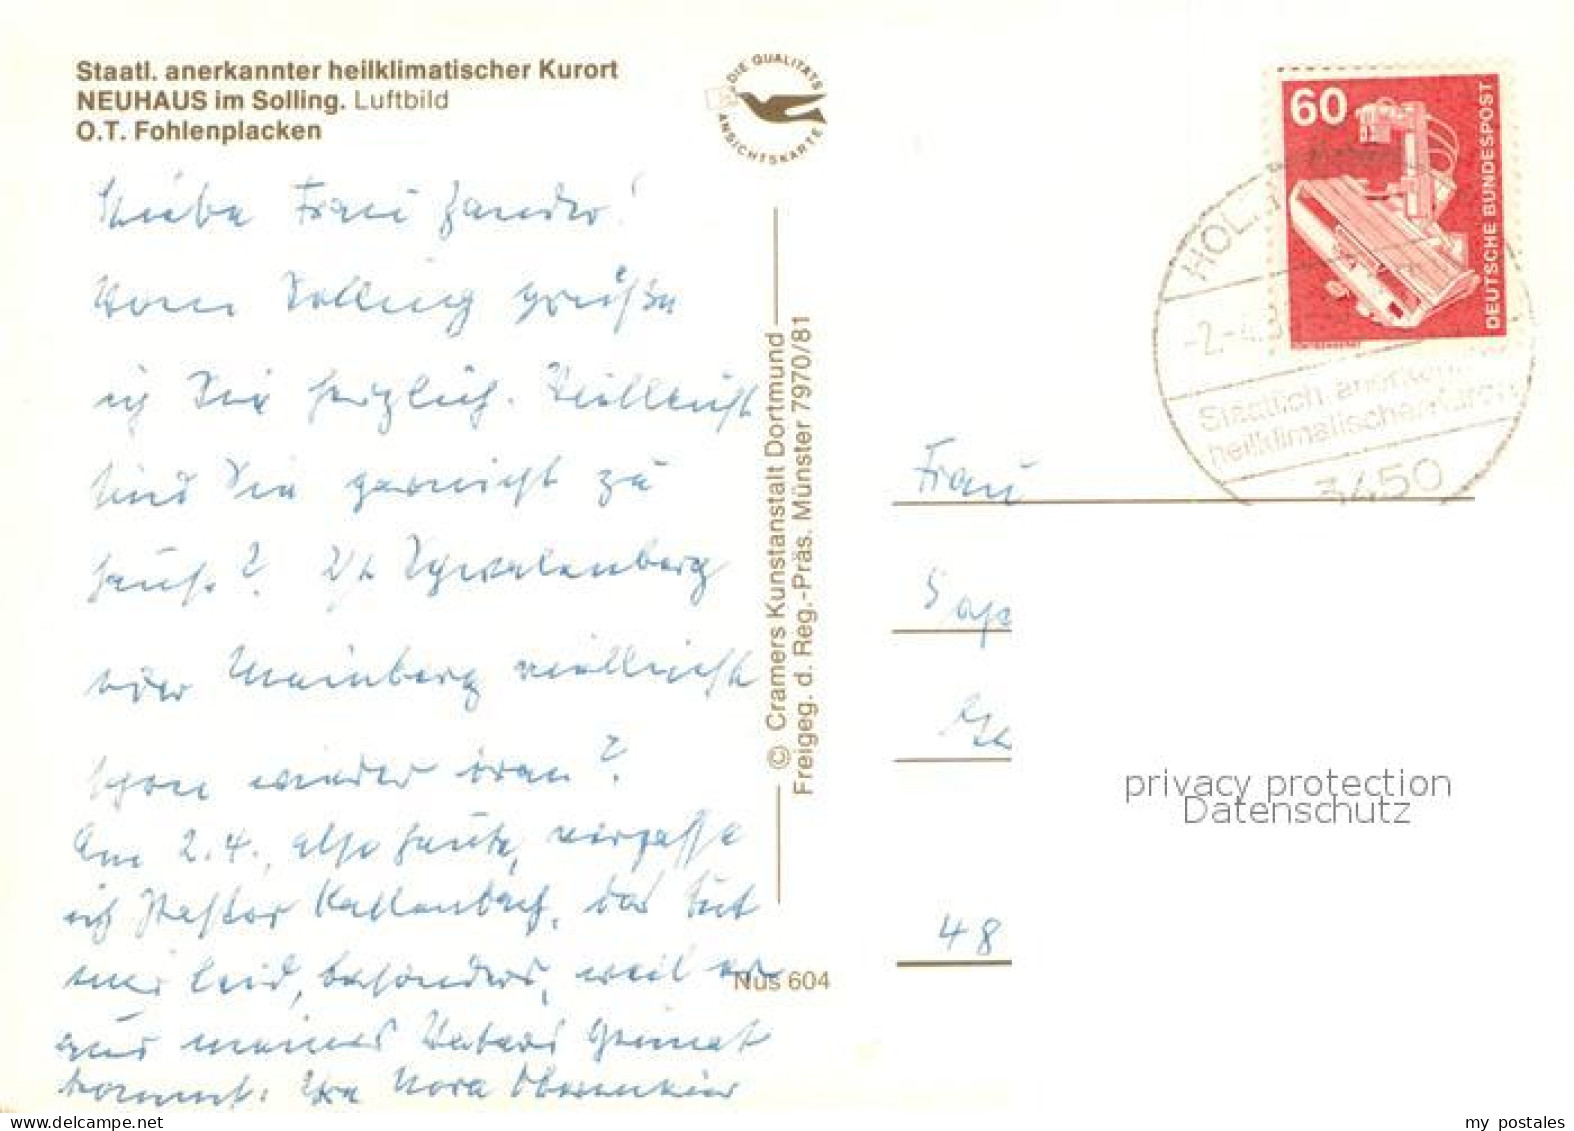 Staatl. anerkannter heilklimatischer Kurort
NEUHAUS im Solling. Luftbild
O.T. Fohlenplacken
DIE QUALITÄTS
ANSICHTSKARTE
Liebe Frau Zander!
Vom Solling grüße
ich Sie herzlich. Vielleicht
sind Sie garnicht zu
Haus.? In Schwalenberg
oder Meinberg vielleicht
schon wieder dran?
Am 2.4., also heute, verpasse
ich Pastor Kallenbach, das tut
mir leid, besonders, weil er
aus meines Vaters Heimat
kommt. Ihre Nora
© Cramers Kunstanstalt Dortmund
Freigeg. d. Reg.-Präs. Münster 7970/81
Nus 604
60
DEUTSCHE BUNDESPOST
HOL
-2.-4.8
Staatlich anerkann
heilklimatischer Kurort
3450
Frau
48
privacy protection
Datenschutz
my postales